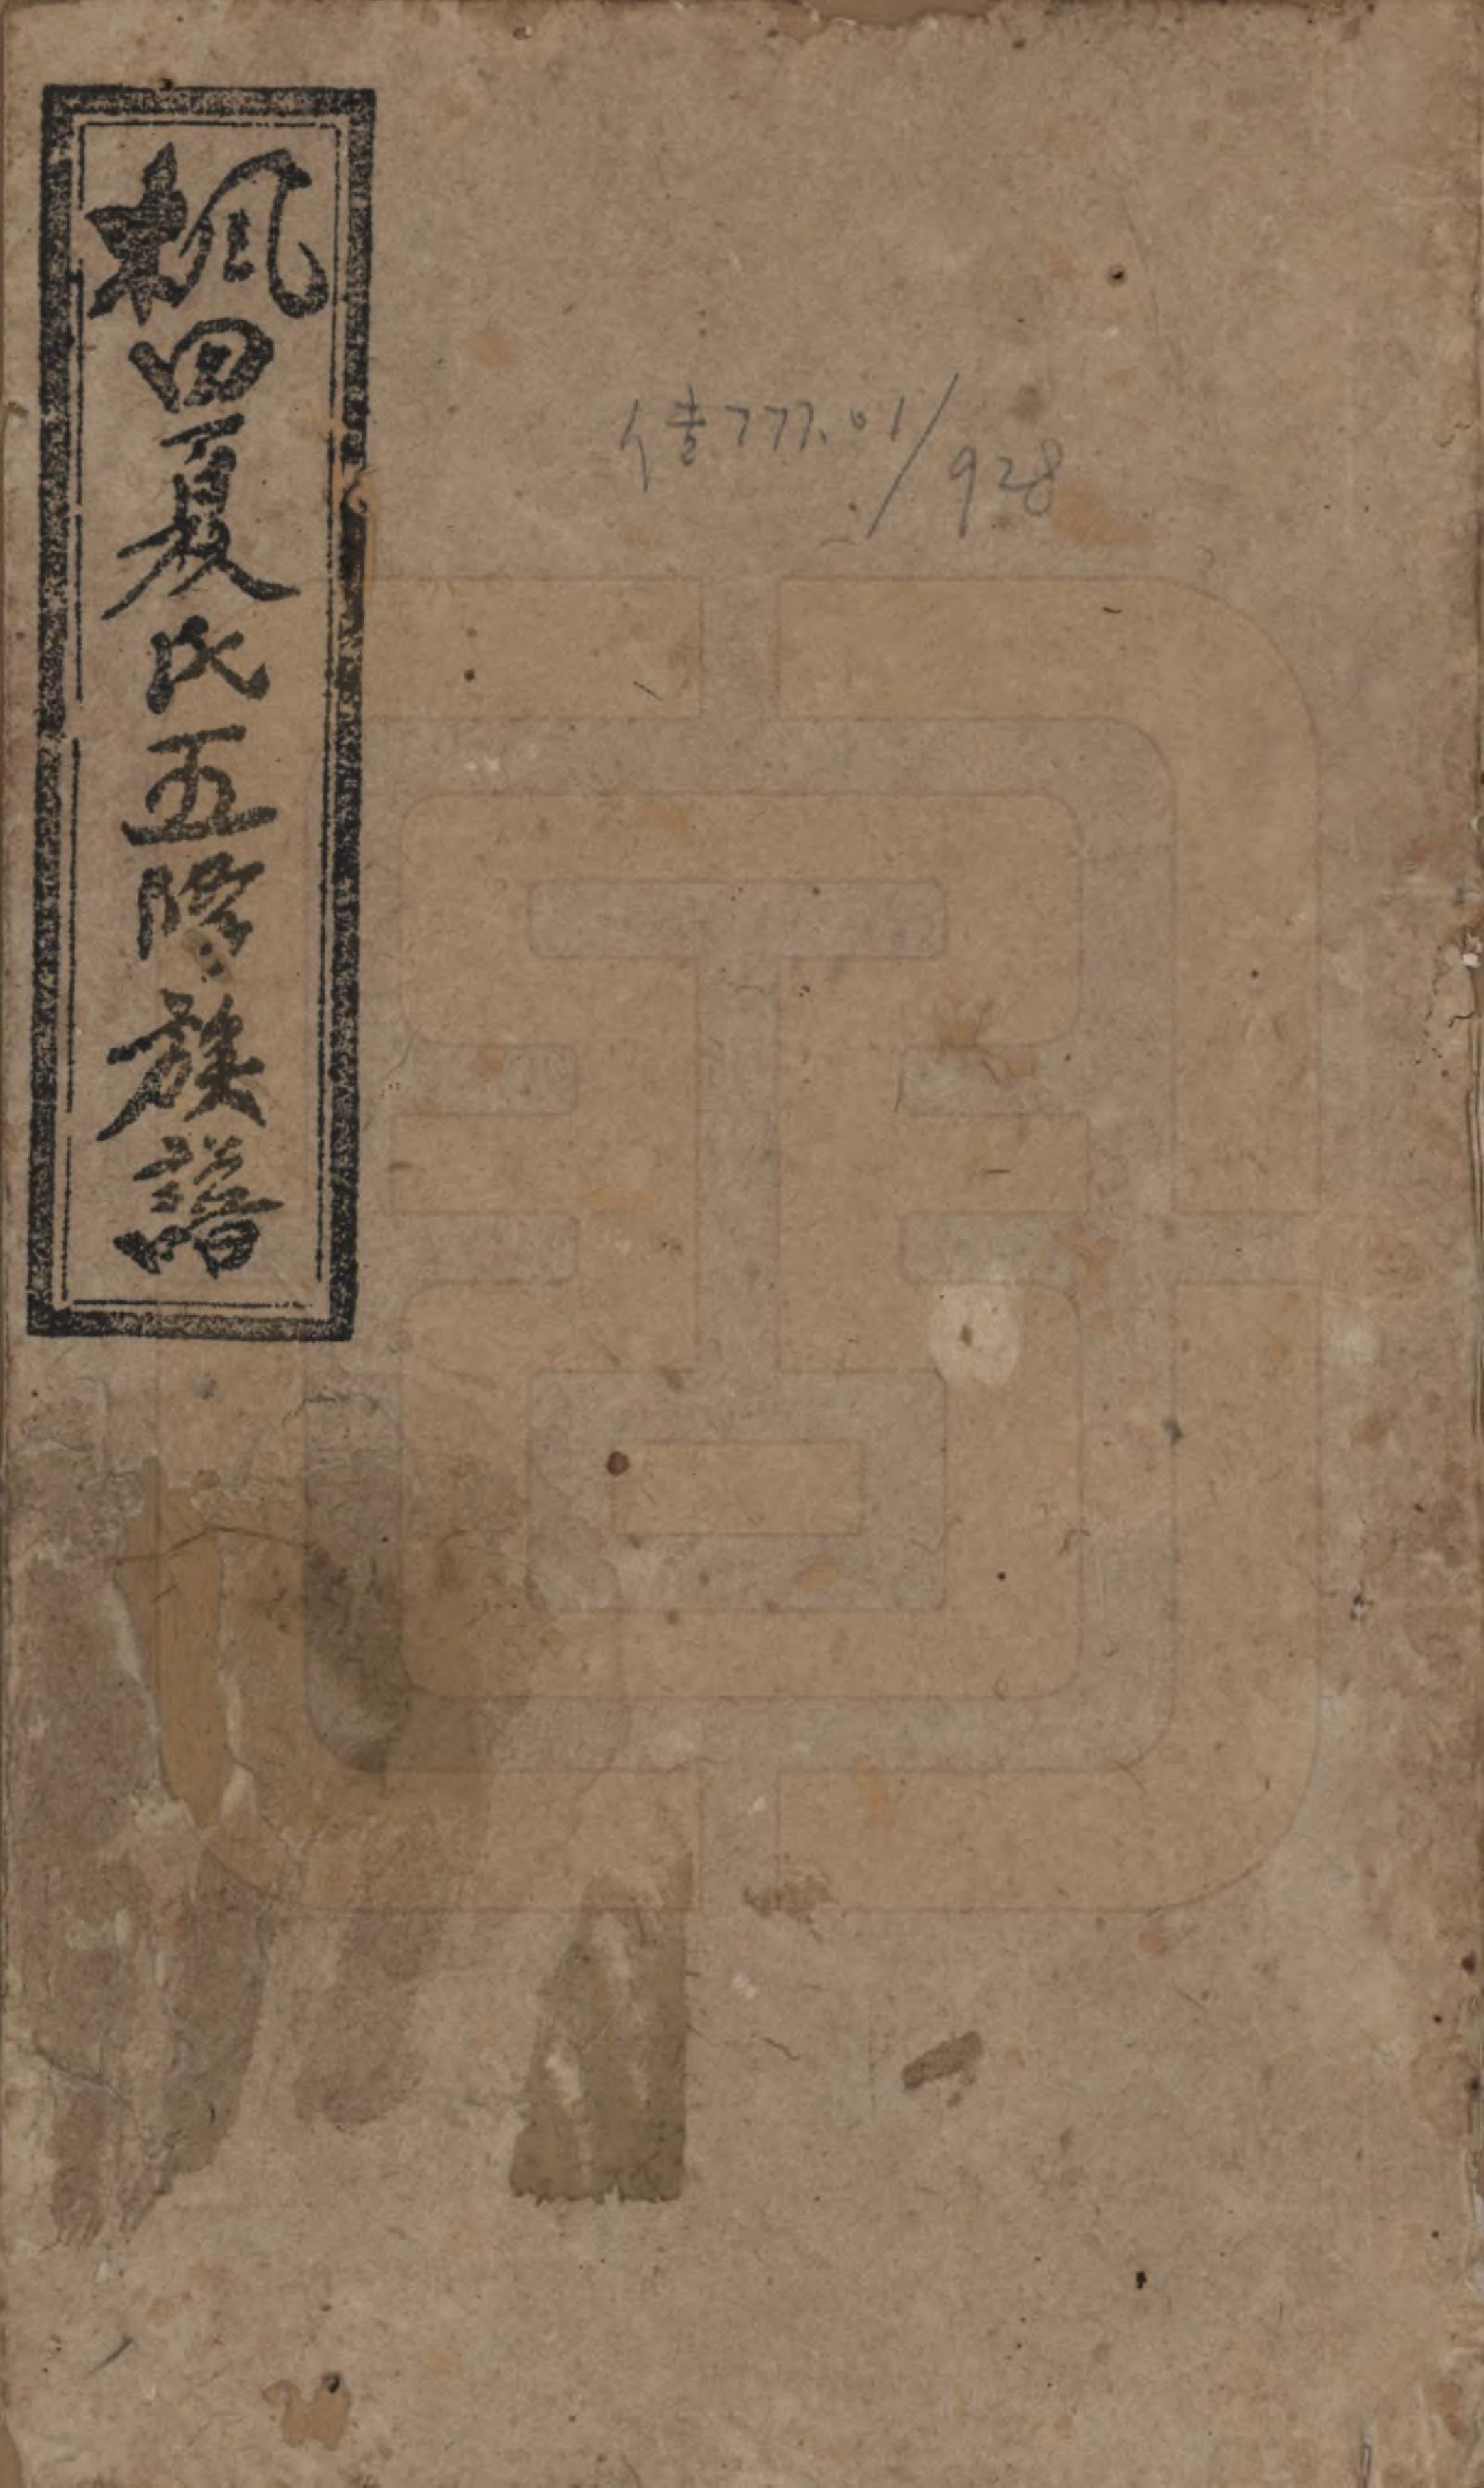 楓田夏氏五修族譜
傳777.01/928